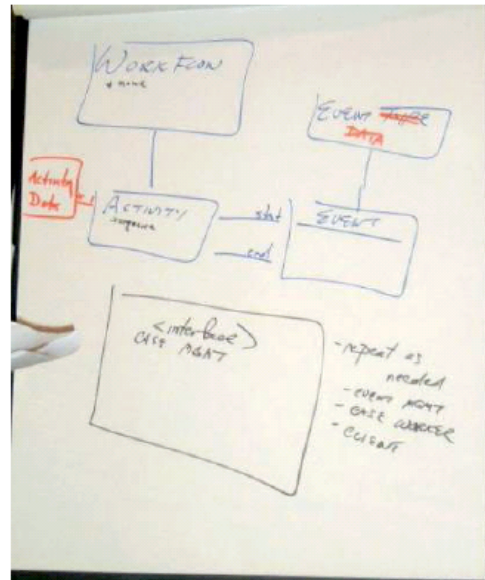 WORKFLOW
+ name
EVENT TYPE
DATA
Activity
Data
ACTIVITY
sequence
start
end
EVENT
<interface>
CASE MGMT
- repeat as
needed
- EVENT MGMT
- CASE WORKER
- CLIENT